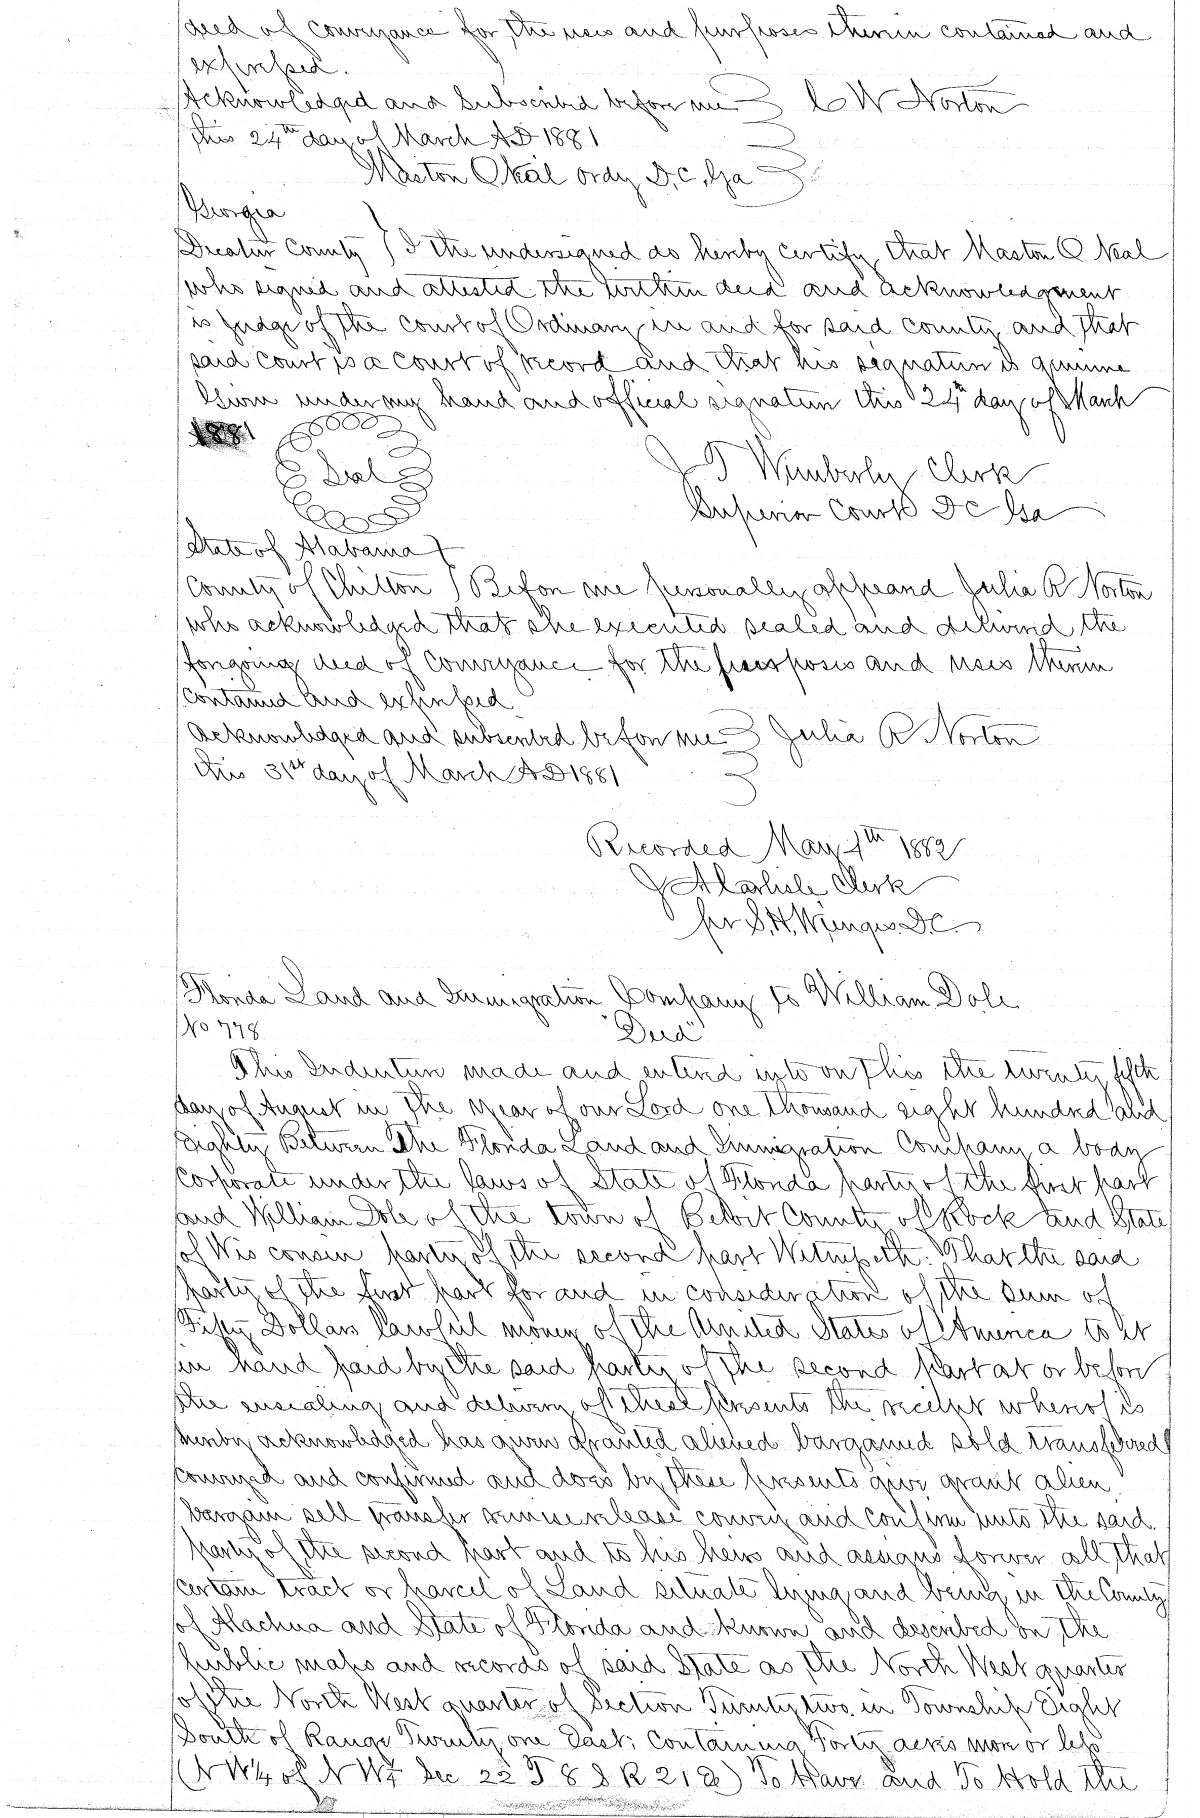 deed of conveyance for the uses and purposes therein contained and
expressed.
Acknowledged and Subscribed before me C W Norton
this 24th day of March AD 1881
Maston O Neal Ordy D.C. Ga
Georgia
Decatur County I the undersigned do hereby certify that Maston O Neal
who signed and attested the within deed and acknowledgement
is Judge of the Court of Ordinary in and for said county and that
said Court is a Court of record and that his signature is genuine
Given under my hand and official signature this 24th day of March
1881
Seal
J T Wimberly Clerk
Superior Court D C Ga
State of Alabama
County of Chilton Before me personally appeared Julia R Norton
who acknowledged that she executed sealed and delivered the
foregoing deed of Conveyance for the purposes and uses therein
contained and expressed
Acknowledged and subscribed before me Julia R Norton
this 31st day of March AD 1881
Recorded May 4th 1882
J A Carlisle Clerk
per S. H. Wienges D.C.
Florida Land and Immigration Company to William Dole
No 778 "Deed"
This Indenture made and entered into on this the twenty fifth
day of August in the year of our Lord one thousand eight hundred and
Eighty Between The Florida Land and Immigration Company a body
Corporate under the laws of State of Florida party of the first part
and William Dole of the town of Beloit County of Rock and State
of Wisconsin party of the second part Witnesseth: That the said
party of the first part for and in consideration of the sum of
Fifty Dollars lawful money of the United States of America to it
in hand paid by the said party of the second part at or before
the ensealing and delivery of these presents the receipt whereof is
hereby acknowledged has given granted aliened bargained sold transferred
conveyed and confirmed and does by these presents give grant alien
bargain sell transfer remise release convey and confirm unto the said
party of the second part and to his heirs and assigns forever all that
certain tract or parcel of Land situate lying and being in the County
of Alachua and State of Florida and known and described on the
public maps and records of said State as the North West quarter
of the North West quarter of Section Twenty two in Township Eight
South of Range Twenty one East; Containing Forty acres more or less
(N W 1/4 of N W 1/4 Sec 22 T 8 S R 21 E) To Have and To Hold the